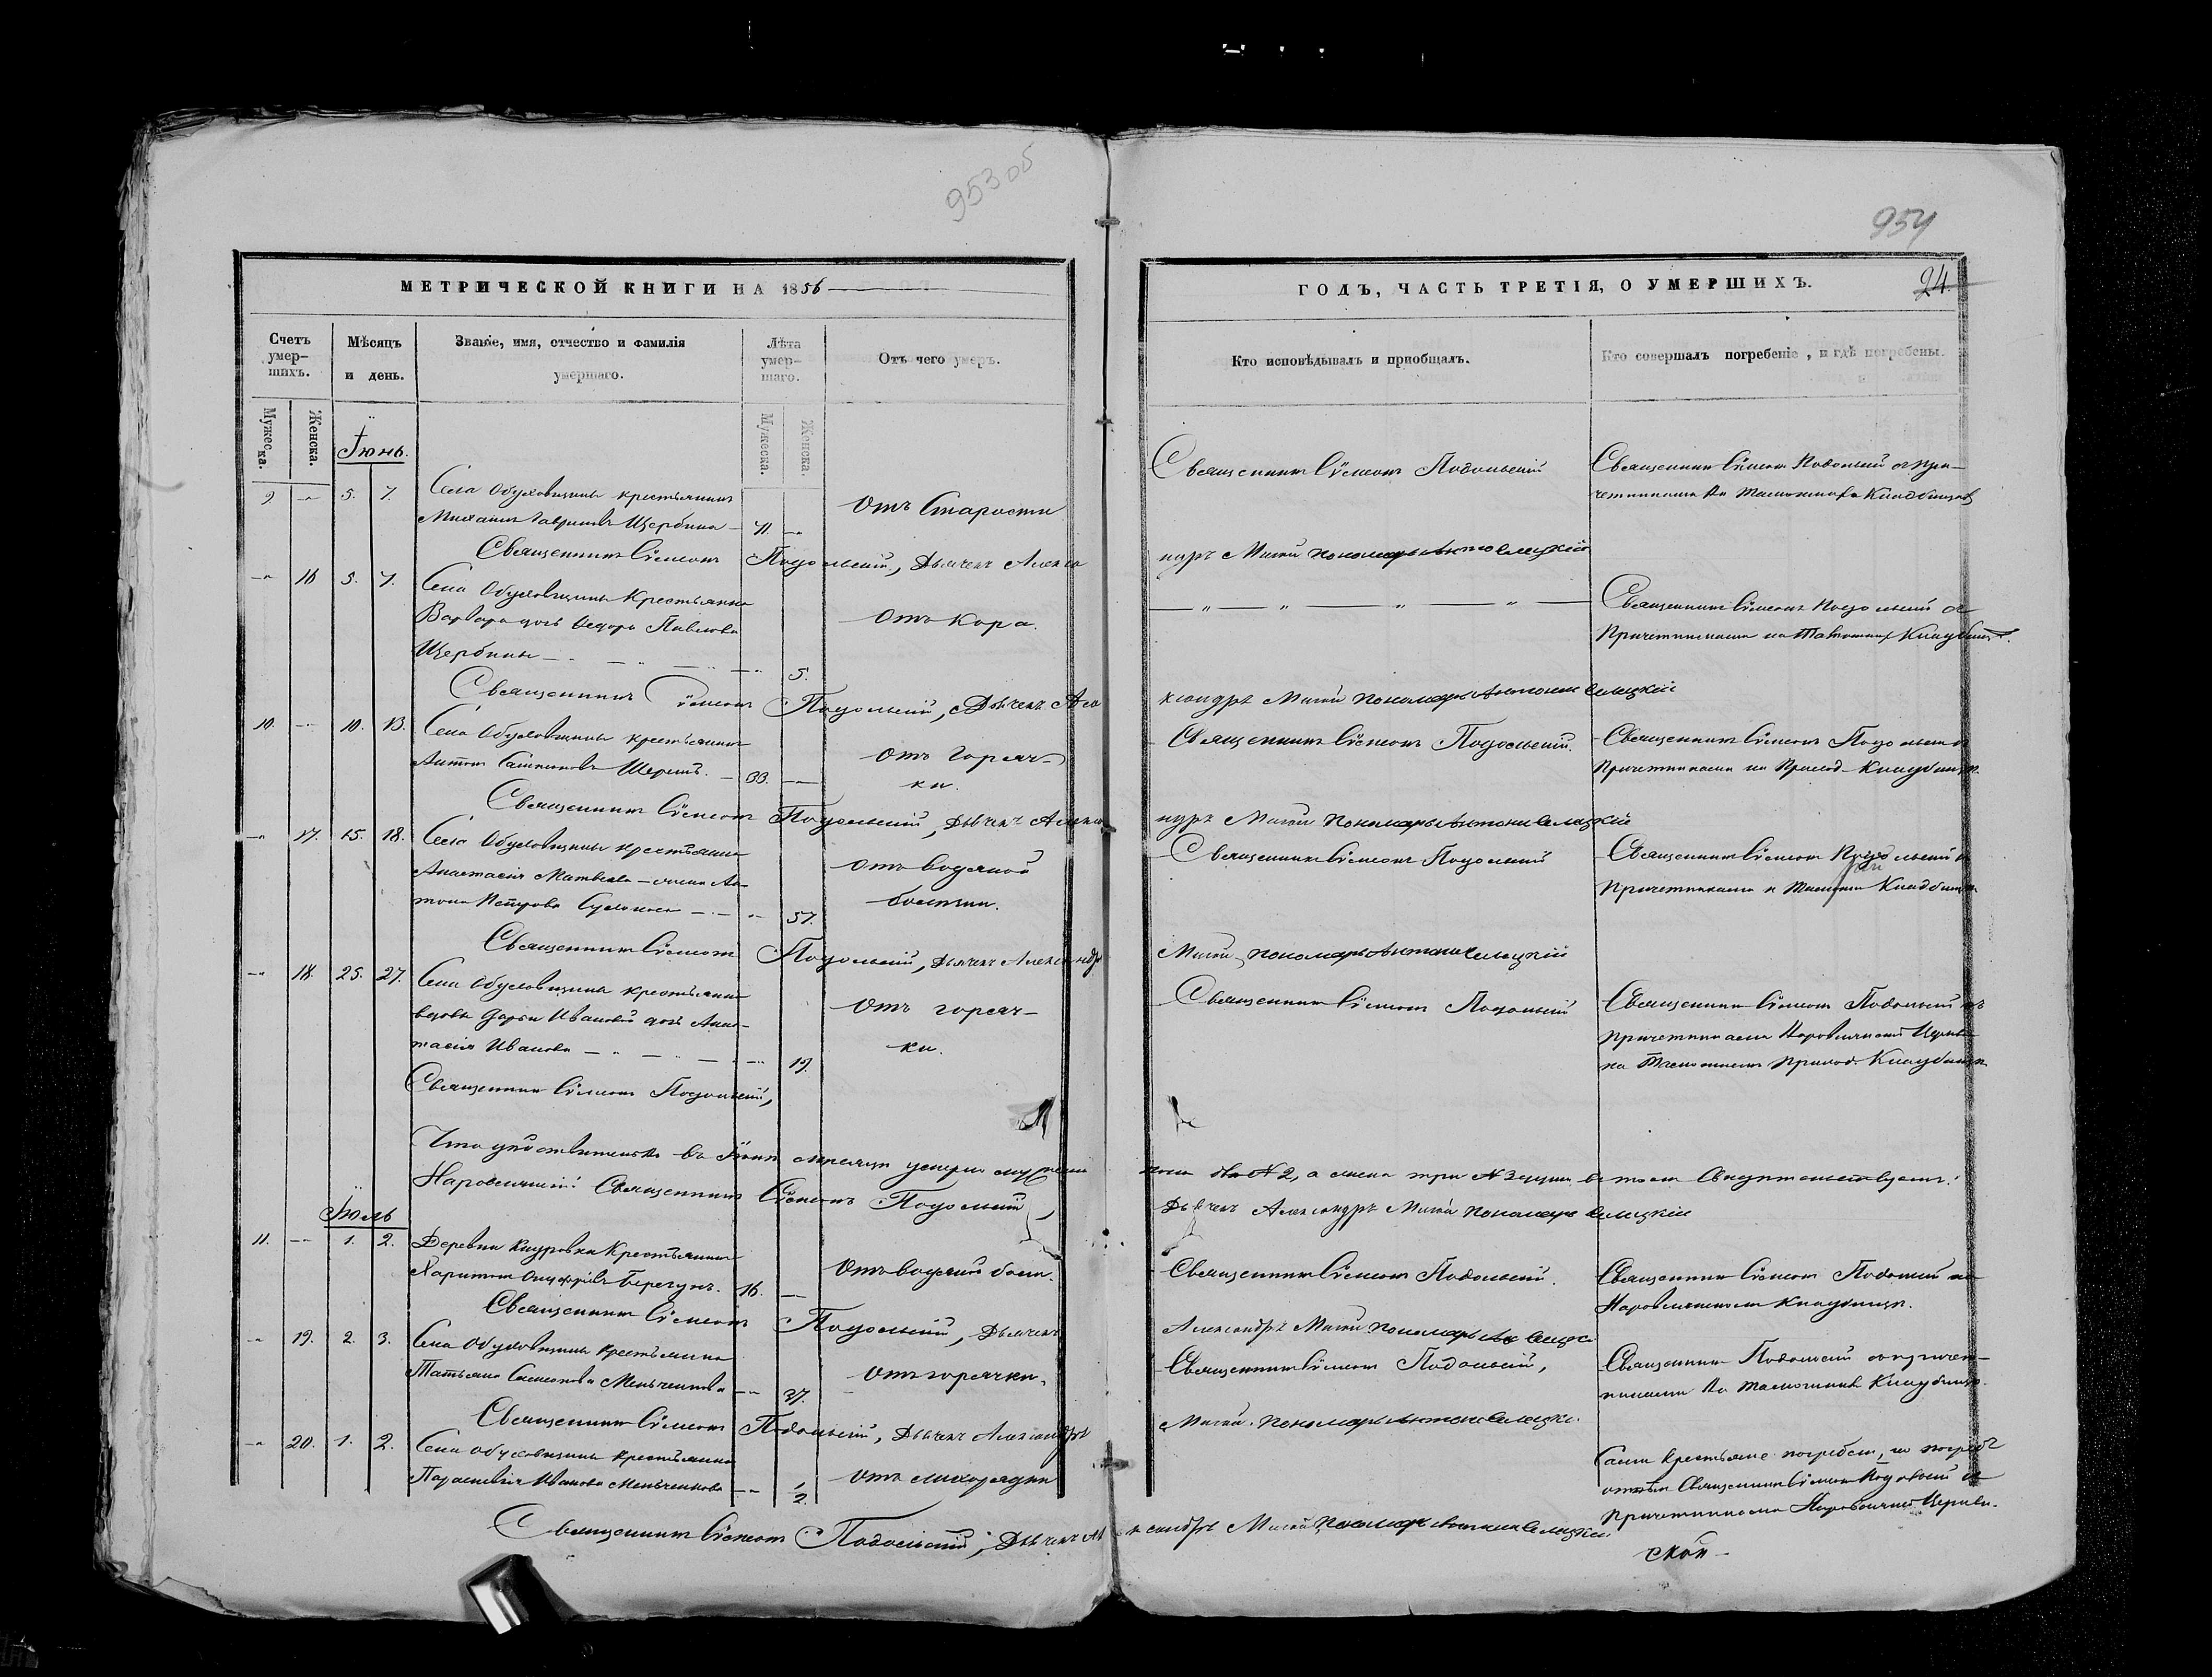 953 об
954
МЕТРИЧЕСКОЙ КНИГИ НА 1856
ГОДЪ, ЧАСТЬ ТРЕТІЯ, О УМЕРШИХЪ.
24.
Счетъ умер-шихъ.
Мѣсяцъ и день.
Званіе, имя, отчество и фамилія умершаго.
Лѣта умер-шаго.
Отъ чего умеръ.
Кто исповѣдывалъ и пріобщалъ.
Кто совершалъ погребеніе, и гдѣ погребены.
Мужеска.
Женска.
Мужеска.
Женска.
Іюнь.
9. 5. 7. Села Обуховщины крестьянинъ
Михаилъ Гавриловъ Щербина 71.
Отъ Старости
Священникъ Сѵмеонъ Подольскій
Священникъ Сѵмеонъ Подольскій съ при-
четниками на Кладбищѣ
Священникъ Сѵмеонъ Подольскій, Дьячекъ Алекса
ндръ Пономарь Антоній
16 5. 7. Села Обуховщины Крестьянка
Варвара дочь Ѳедора Павлова
Щербины 5.
Отъ Кора.
Священникъ Сѵмеонъ Подольскій съ
Причетниками на Кладбищѣ.
Священникъ Сѵмеонъ Подольскій, Дьячекъ Але
ксандръ Пономарь Антоній
10. 10. 13. Села Обуховщины крестьянинъ
Антонъ 33.
Отъ Горяч-
ки.
Священникъ Сѵмеонъ Подольскій.
Священникъ Сѵмеонъ Подольскій съ
Причетниками на Приход. Кладбищѣ.
Священникъ Сѵмеонъ Подольскій, Дьячекъ Алекса
ндръ Пономарь Антоній
17. 15. 18. Села Обуховщины крестьянка
Анастасія Матвеева жена Ан-
тона Петрова 57.
Отъ водяной
болезни.
Священникъ Сѵмеонъ Подольскій
Священникъ Сѵмеонъ Подольскій съ
Причетниками Кладбищѣ
Священникъ Сѵмеонъ Подольскій, Дьячекъ Александръ
Пономарь Антоній
18. 25. 27. Села Обуховщины крестьянки
вдовы Дарьи Ивановой дочь Анас-
тасія Иванова 19.
Отъ горяч-
ки.
Священникъ Сѵмеонъ Подольскій
Священникъ Сѵмеонъ Подольскій съ
Причетниками Наровлянской Церкви
на Приход. Кладбищѣ
Священникъ Сѵмеонъ Подольскій,
Что дѣйствительно въ Іюнѣ месяцѣ умерло мужеска
пола № 2, а женска три № 3 души въ томъ Свидѣтельствуемъ:
Наровлянскій Священникъ Сѵмеонъ Подольскій,
Дьячекъ Александръ Пономарь
Іюль
11. 1. 2. Деревни Крестьянинъ
Харитонъ 16.
Отъ водяной болез.
Священникъ Сѵмеонъ Подольскій.
Священникъ Сѵмеонъ Подольскій на
Наровлянскомъ Кладбищѣ.
Священникъ Сѵмеонъ Подольскій, Дьячекъ
Александръ Пономарь
19. 2. 3. Села Обуховщины Крестьянка
Татьяна 37.
Отъ горячки.
Священникъ Сѵмеонъ Подольскій,
Священникъ Подольскій съ причет-
никами на Кладбищѣ.
Священникъ Сѵмеонъ Подольскій, Дьячекъ Александръ
Пономарь Антоній
20. 1. 2. Села Обуховщины Крестьянка
Параскевія Иванова 1/2
Отъ лихорадки
Сами крестьяне погребли, а погреб.
Священникъ Сѵмеонъ Подольскій съ
Причетниками Церкви.
Священникъ Сѵмеонъ Подольскій, Дьячекъ Александръ Пономарь